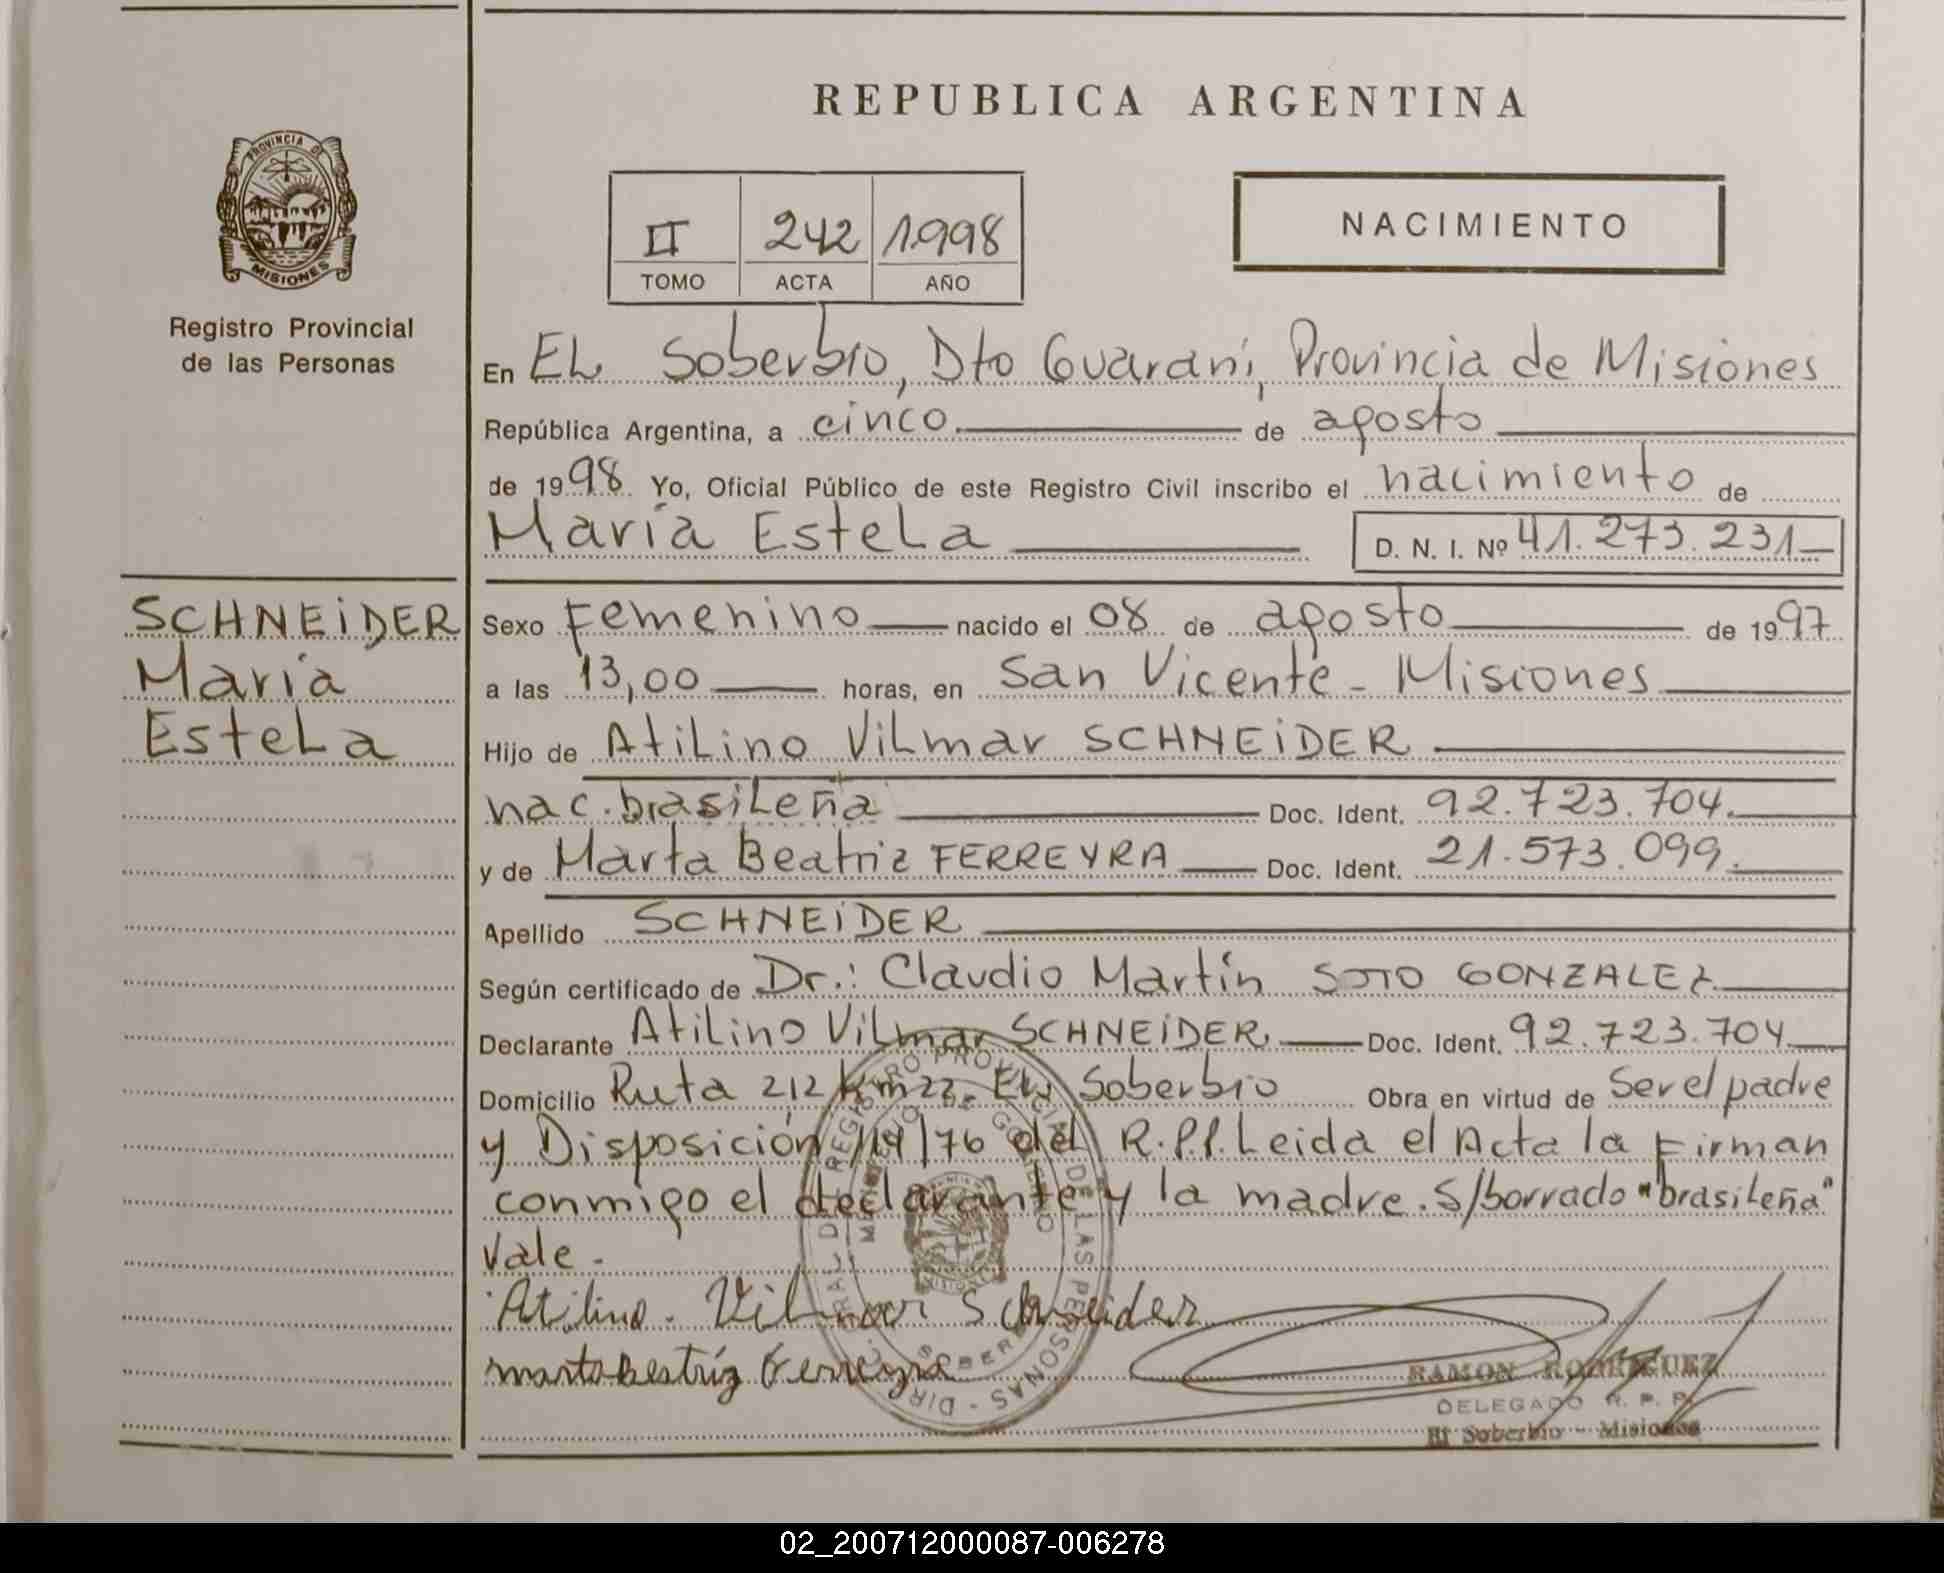 REPUBLICA ARGENTINA
PROVINCIA DE
MISIONES
Registro Provincial
de las Personas
II 242 1.998
TOMO ACTA AÑO
NACIMIENTO
En EL Soberbio, Dto Guaraní, Provincia de Misiones
República Argentina, a cinco. de agosto
de 1998. Yo, Oficial Público de este Registro Civil inscribo el nacimiento de
María Estela D. N. I. Nº 41.273.231
SCHNEIDER
María
Estela
Sexo Femenino nacido el 08 de agosto de 1997
a las 13,00 horas, en San Vicente - Misiones
Hijo de Atilino Vilmar SCHNEIDER
nac. brasileña Doc. Ident. 92.723.704.
y de Marta Beatriz FERREYRA Doc. Ident. 21.573.099.
Apellido SCHNEIDER
Según certificado de Dr.: Claudio Martín SOTO GONZALEZ
Declarante Atilino Vilmar SCHNEIDER Doc. Ident. 92.723.704
Domicilio Ruta 212 Km 22. EL Soberbio Obra en virtud de Ser el padre
y Disposición 114/76 del R.P.P. Leida el Acta la Firman
conmigo el declarante y la madre. S/borrado "brasileña"
Vale.
Atilino. Vilmar Schneider
marta beatriz Ferreyra
RAMON RODRIGUEZ
DELEGADO R. P. P.
El Soberbio - Misiones
02_200712000087-006278